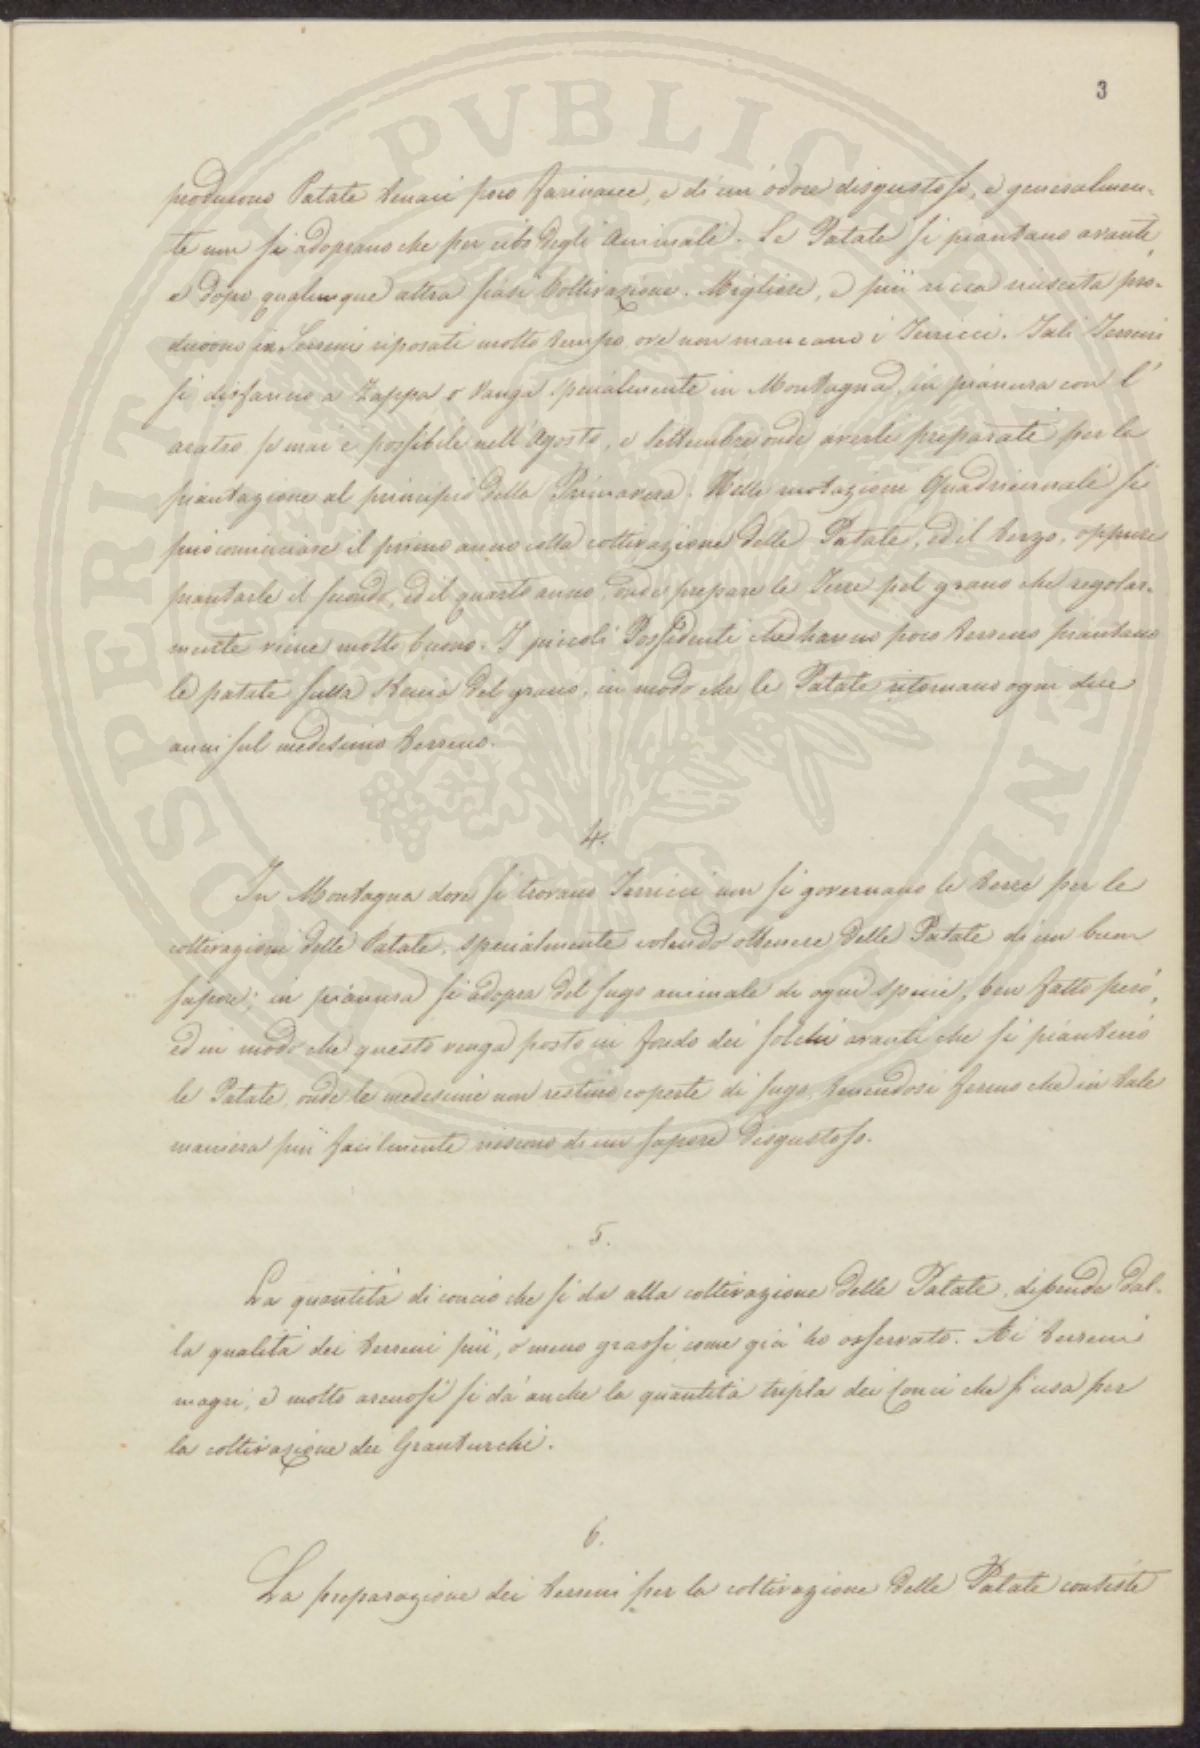 3
producono Patate tenaci poco farinacee, e di un odore disgustoso, e generalmen-
te non si adoprano che per cibo degli Animali. Le Patate si piantano avanti,
e dopo qualunque altra siasi Coltivazione. Migliore, e più ricca riuscita pro-
ducono in Terreni riposati molto tempo, ove non mancano i Terricci. Tali Terreni
si disfanno a Zappa o Vanga specialmente in Montagna, in pianura con l'
aratro se mai è possibile nell'Agosto, e Settembre onde averli preparati per la
piantazione al principio della Primavera. Nelle ruotazioni Quadriennali si
può cominciare il primo anno colla coltivazione delle Patate, ed il terzo, oppure
piantarle il secondo, ed il quarto anno, onde preparare le Terre pel grano che regolar-
mente viene molto buono. I piccoli Possidenti che hanno poco terreno piantano
le patate sulla del grano, in modo che le Patate ritornano ogni due
anni sul medesimo terreno.
4.
In Montagna dove si trovano Terricci non si governano le terre per le
coltivazioni delle Patate, specialmente volendo ottenere delle Patate di un buon
sapore; in pianura si adopra del sugo animale di ogni specie, ben fatto però,
ed in modo che questo venga posto in fondo dei solchi avanti che si piantino
le Patate, onde le medesime non restino coperte di sugo, tenendosi fermo che in tale
maniera più facilmente riescono di un sapore disgustoso.
5.
La quantità di concio che si da alla coltivazione delle Patate, dipende dal-
la qualità dei terreni più, o meno grassi come già ho osservato. Ai terreni
magri, e molto arenosi si dà anche la quantità tripla dei Conci che si usa per
la coltivazione dei Granturchi.
6.
La preparazione dei terreni per la coltivazione delle Patate consiste